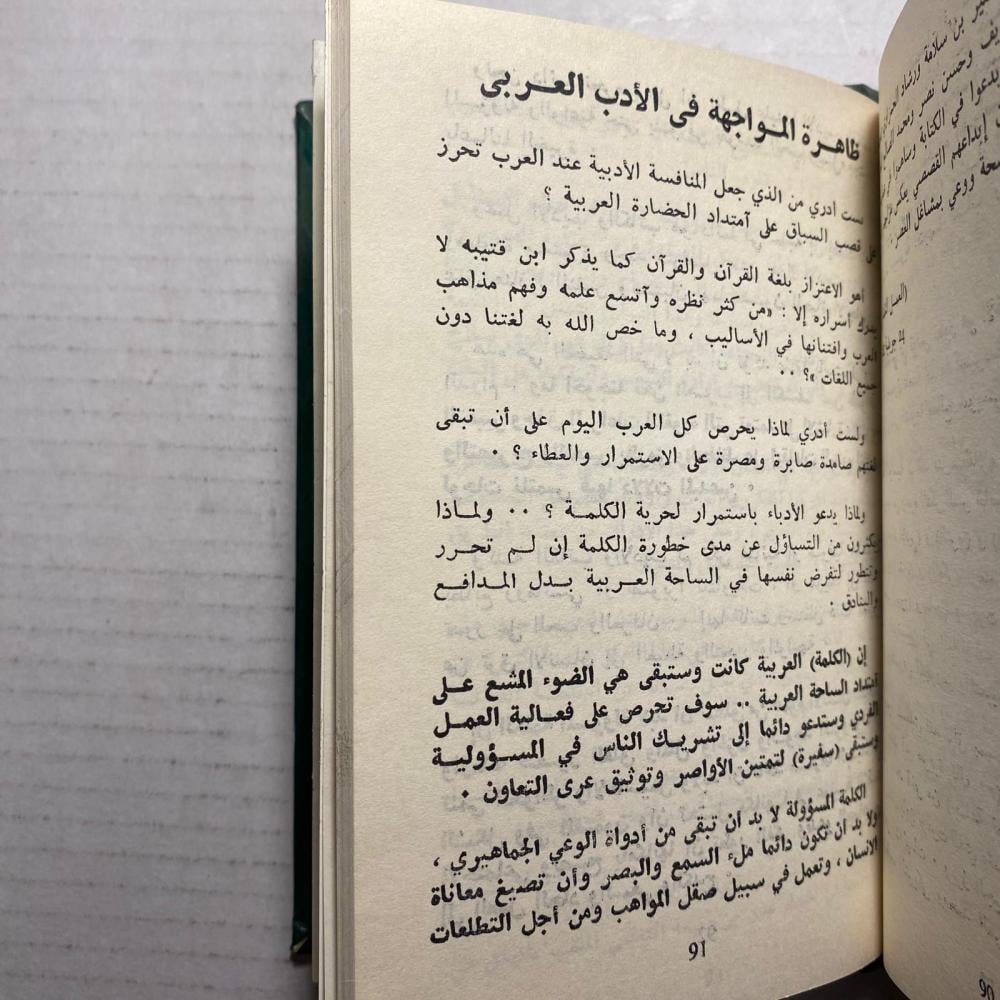 ظاهرة المواجهة فى الأدب العربى
لست أدري من الذي جعل المنافسة الأدبية عند العرب تحرز
على قصب السباق على آمتداد الحضارة العربية ؟
أهو الاعتزاز بلغة القرآن والقرآن كما يذكر ابن قتيبه لا
يدرك أسراره إلا : «من كثر نظره وآتسع علمه وفهم مذاهب
العرب وافتنانها في الأساليب ، وما خص الله به لغتنا دون
جميع اللغات »؟ ..
ولست أدري لماذا يحرص كل العرب اليوم على أن تبقى
لغتهم صامدة صابرة ومصرة على الاستمرار والعطاء ؟ .
ولماذا يدعو الأدباء باستمرار لحرية الكلمة ؟ .. ولماذا
يكثرون من التساؤل عن مدى خطورة الكلمة إن لم تحرر
وتتطور لتفرض نفسها في الساحة العربية بدل المدافع
والبنادق .
إن (الكلمة) العربية كانت وستبقى هي الضوء المشع على
امتداد الساحة العربية .. سوف تحرص على فعالية العمل
الفردي وستدعو دائما إلى تشريك الناس في المسؤولية
وستبقى (سفيرة) لتمتين الأواصر وتوثيق عرى التعاون .
الكلمة المسؤولة لا بد ان تبقى من أدواة الوعي الجماهيري ،
ولا بد ان تكون دائما ملء السمع والبصر وأن تصيغ معاناة
الانسان ، وتعمل في سبيل صقل المواهب ومن أجل التطلعات
91
بن سلامة ورشاد
وحسن نصر ومحمد
في الكتابة
إبداعهم القصصي
ووعي بمشاغل العصر .
90